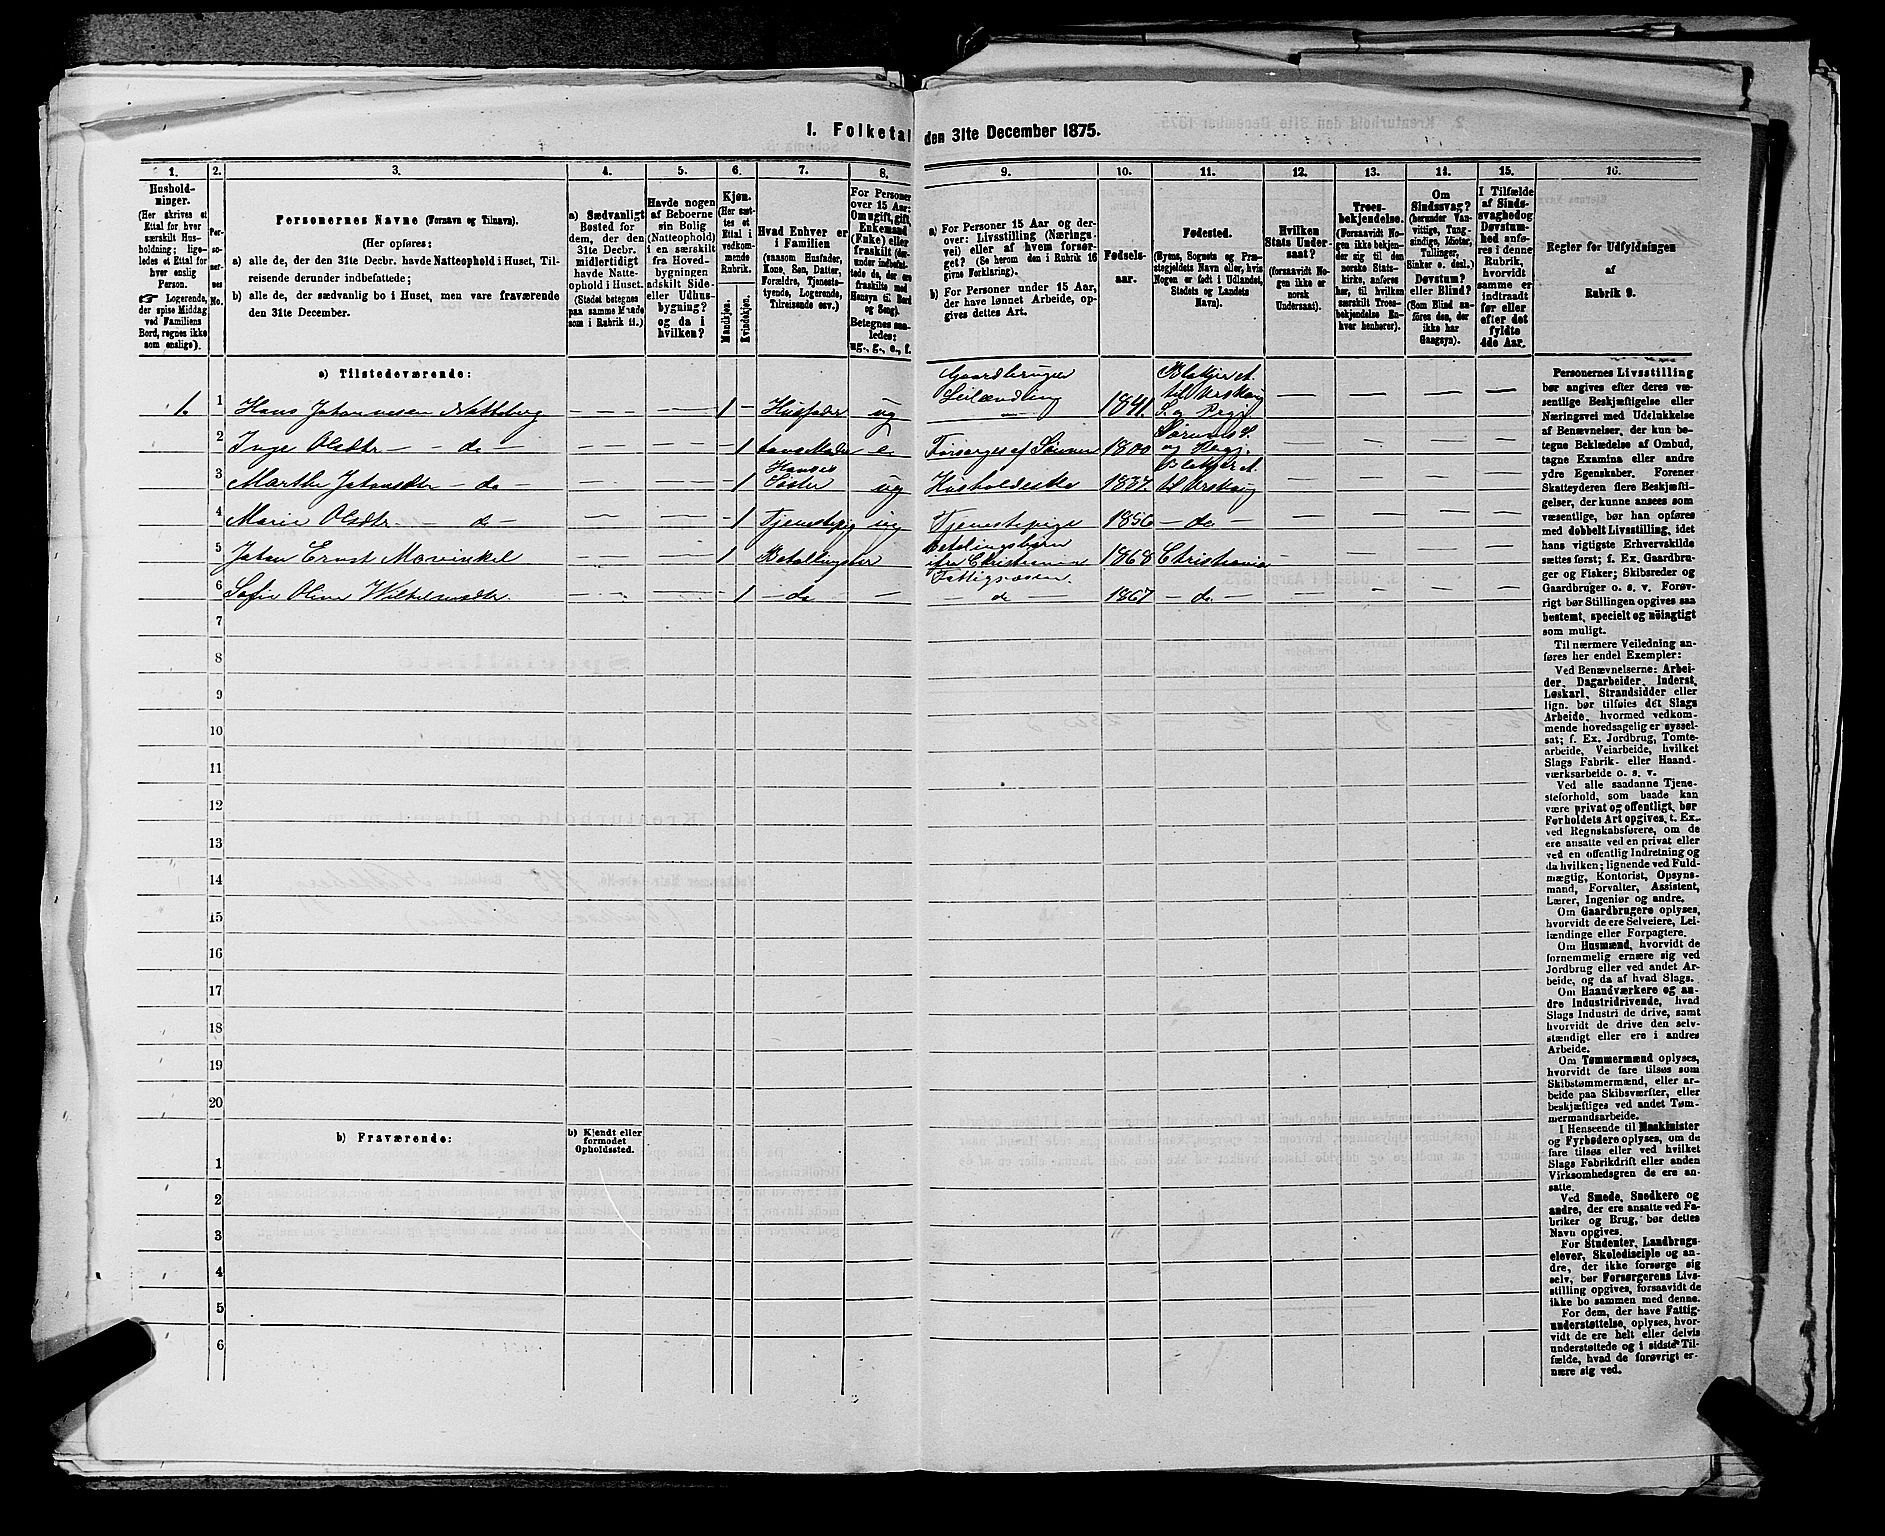 1. Folketal den 31te December 1875.
1. 2. 3. 4. 5. 6. 7. 8. 9. 10. 11. 12. 13. 14. 15. 16.
Hushold-
ninger.
(Her skrives et
Ettal for hver
særskilt Hus-
holdning; lige-
ledes et Ettal for
hver enslig
Person.
☞ Logerende,
der spise Middag
ved Familiens
Bord, regnes ikke
som enslige).
Per-
so-
ner-
nes
No.
Personernes Navne (Fornavn og Tilnavn).
(Her opføres:
a) alle de, der den 31te Decbr. havde Natteophold i Huset, Til-
reisende derunder indbefattede;
b) alle de, der sædvanlig bo i Huset, men vare fraværende
den 31te December.
a) Sædvanligt
Bosted for
dem, der den
31te Decbr.
midlertidigt
havde Natte-
ophold i Huset.
(Stedet betegnes
paa samme Maade
som i Rubrik 11.)
Havde nogen
af Beboerne
sin Bolig
(Natteophold)
i en særskilt
fra Hoved-
bygningen
adskilt Side-
eller Udhus-
bygning?
og da i
hvilken?
Kjøn.
(Her sæt-
tes et
Ettal i
vedkom-
mende
Rubrik.
Mandkjøn.
Kvindekjøn.
Hvad Enhver er
i Familien
(saasom Husfader,
Kone, Søn, Datter,
Forældre, Tjeneste-
tyende, Logerende,
Tilreisende osv.)
For Personer
over 15 Aar:
Om ugift, gift,
Enkemand
(Enke) eller
fraskilt (der-
under indbefat-
tede de, der ere
fraskilte med
Hensyn til Bord
og Seng).
Betegnes saa-
ledes:
ug., g., e., f.
a) For Personer 15 Aar og der-
over: Livsstilling (Nærings-
vei) eller af hvem forsør-
get? (Se herom den i Rubrik 16
givne Forklaring).
b) For Personer under 15 Aar,
der have lønnet Arbeide, op-
gives dettes Art.
Fødsels-
aar.
Fødested.
(Byens, Sognets og Præ-
stegjeldets Navn eller, hvis
Nogen er født i Udlandet,
Stedets og Landets
Navn).
Hvilken
Stats Under-
saat?
(forsaavidt No-
gen ikke er
norsk
Undersaat).
Troes-
bekjendelse.
(Forsaavidt No-
gen ikke bekjen-
der sig til den
norske Stats-
kirke, anføres
her, til hvilken
særskilt Troes-
bekjendelse En-
hver henhører).
Om
Sindssvag?
(herunder Van-
vittige, Tung-
sindige, Idioter,
Tullinger,
Sinker o. desl.)
Døvstum?
eller Blind?
(Som Blind an-
føres den, der
ikke har
Gangsyn).
I Tilfælde
af Sinds-
svaghed og
Døvstum-
hed anfø-
res i denne
Rubrik,
hvorvidt
samme er
indtraadt
før eller
efter det
fyldte
4de Aar.
Regler for Udfyldningen
af
Rubrik 9.
a) Tilstedeværende:
1. 1 Hans Johannesen Natteberg — — 1 — Husfader ug Gaardbruger Leilænding 1841. Blakjer A. til Urskoug S. og Prgj.
2 Inge Olsdtr — do — — — — 1 hans Moder e Forsørges af Sønnen 1800 Sørums S. og Prgj.
3 Marthe Johansdtr — do — — — — 1 Hanses Søster ug Husholderske 1837. Blakjer A. til Urskoug
4 Marie Olsdtr — do — — — — 1 Tjenestepig ug Tjenestepige 1856 — do —
5 Johan Ernst Mowinkel — — 1 Betalingsbar Betalingsbarn ifra Christiania Fattigvæsen 1868 Christiania
6 Sofie Oline Wilhelmsdtr — — — 1 — do — — do — 1867 — do —
7
8
9
10
11
12
13
14
15
16
17
18
19
20
b) Fraværende:
b) Kjendt eller
formodet
Opholdssted.
1
2
3
4
5
6
Personernes Livsstilling
bør angives efter deres væ-
sentlige Beskjæftigelse eller
Næringsvei med Udelukkelse
af Benævnelser, der kun be-
tegne Beklædelse af Ombud,
tagne Examina eller andre
ydre Egenskaber. Forener
Skatteyderen flere Beskjæfti-
gelser, der kunne ansees som
væsentlige, bør han opføres
med dobbelt Livsstilling, idet
hans vigtigste Erhvervskilde
sættes først; f. Ex. Gaardbru-
ger og Fisker; Skibsreder og
Gaardbruger o. s. v. Forøv-
rigt bør Stillingen opgives saa
bestemt, specielt og nøiagtigt
som muligt.
Til nærmere Veiledning an-
føres her endel Exempler:
Ved Benævnelserne: Arbei-
der, Dagarbeider, Inderst,
Løskarl, Strandsidder eller
lign. bør tilføies det Slags
Arbeide, hvormed vedkom-
mende hovedsagelig er syssel-
sat; f. Ex. Jordbrug, Tomte-
arbeide, Veiarbeide, hvilket
Slags Fabrik- eller Haand-
værksarbeide o. s. v.
Ved alle saadanne Tjene-
steforhold, som baade kan
være privat og offentligt, bør
Forholdets Art opgives, t. Ex.
ved Regnskabsførere, om de
ere ansatte ved en privat eller
ved en offentlig Indretning og
da hvilken; lignende ved Fuld-
mægtig, Kontorist, Opsyns-
mand, Forvalter, Assistent,
Lærer, Ingeniør og andre.
Om Gaardbrugere oplyses,
hvorvidt de ere Selveiere, Lei-
lændinge eller Forpagtere.
Om Husmænd, hvorvidt de
fornemmelig ernære sig ved
Jordbrug eller ved andet Ar-
beide, og da af hvad Slags.
Om Haandværkere og an-
dre Industridrivende, hvad
Slags Industri de drive, samt
hvorvidt de drive den selv-
stændigt eller ere i andres
Arbeide.
Om Tømmermænd oplyses,
hvorvidt de fare tilsøs som
Skibstømmermænd, eller ar-
beide paa Skibsværfter, eller
beskjæftiges ved andet Tøm-
mermandsarbeide.
I Henseende til Maskinister
og Fyrbødere oplyses, om de
fare tilsøs eller ved hvilket
Slags Fabrikdrift eller anden
Virksomhedsgren de ere an-
satte.
Ved Smede, Snedkere og
andre, der ere ansatte ved Fa-
briker og Brug, bør dettes
Navn opgives.
For Studenter, Landbrugs-
elever, Skoledisciple og an-
dre, der ikke forsørge sig
selv, bør Forsørgerens Livs-
stilling opgives, forsaavidt de
ikke bo sammen med denne.
For dem, der have Fattig-
understøttelse, oplyses, hvor-
vidt de ere helt eller delvis
understøttede og i sidste Til-
fælde, hvad de forøvrigt er-
nære sig ved.